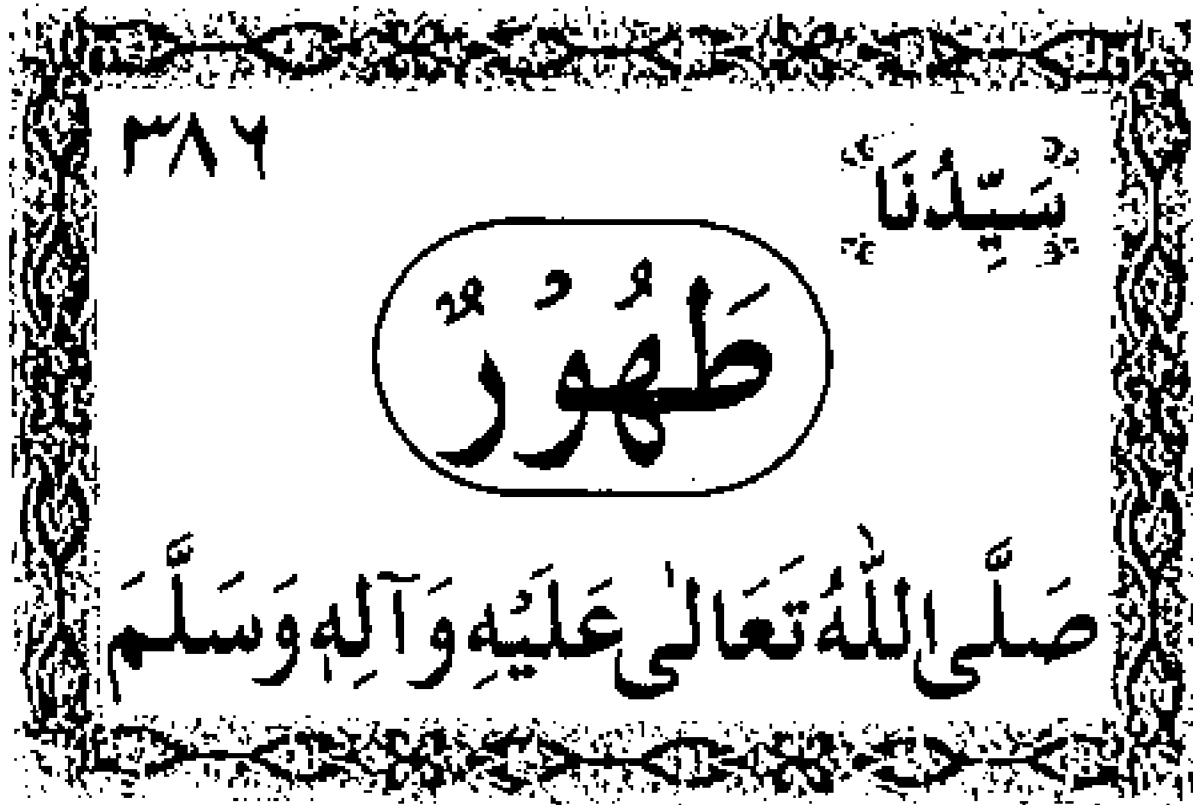 ٣٨٦
سَيِّدُنَا
طَهُوْرٌ
صَلَّى اللّٰهُ تَعَالٰى عَلَيْهِ وَآلِهٖ وَسَلَّمَ